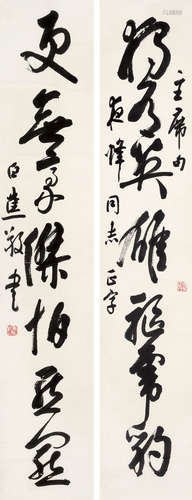 独有英雄驱虎豹
主席句
夜烽同志正字
更无豪杰怕熊罴
白蕉敬书